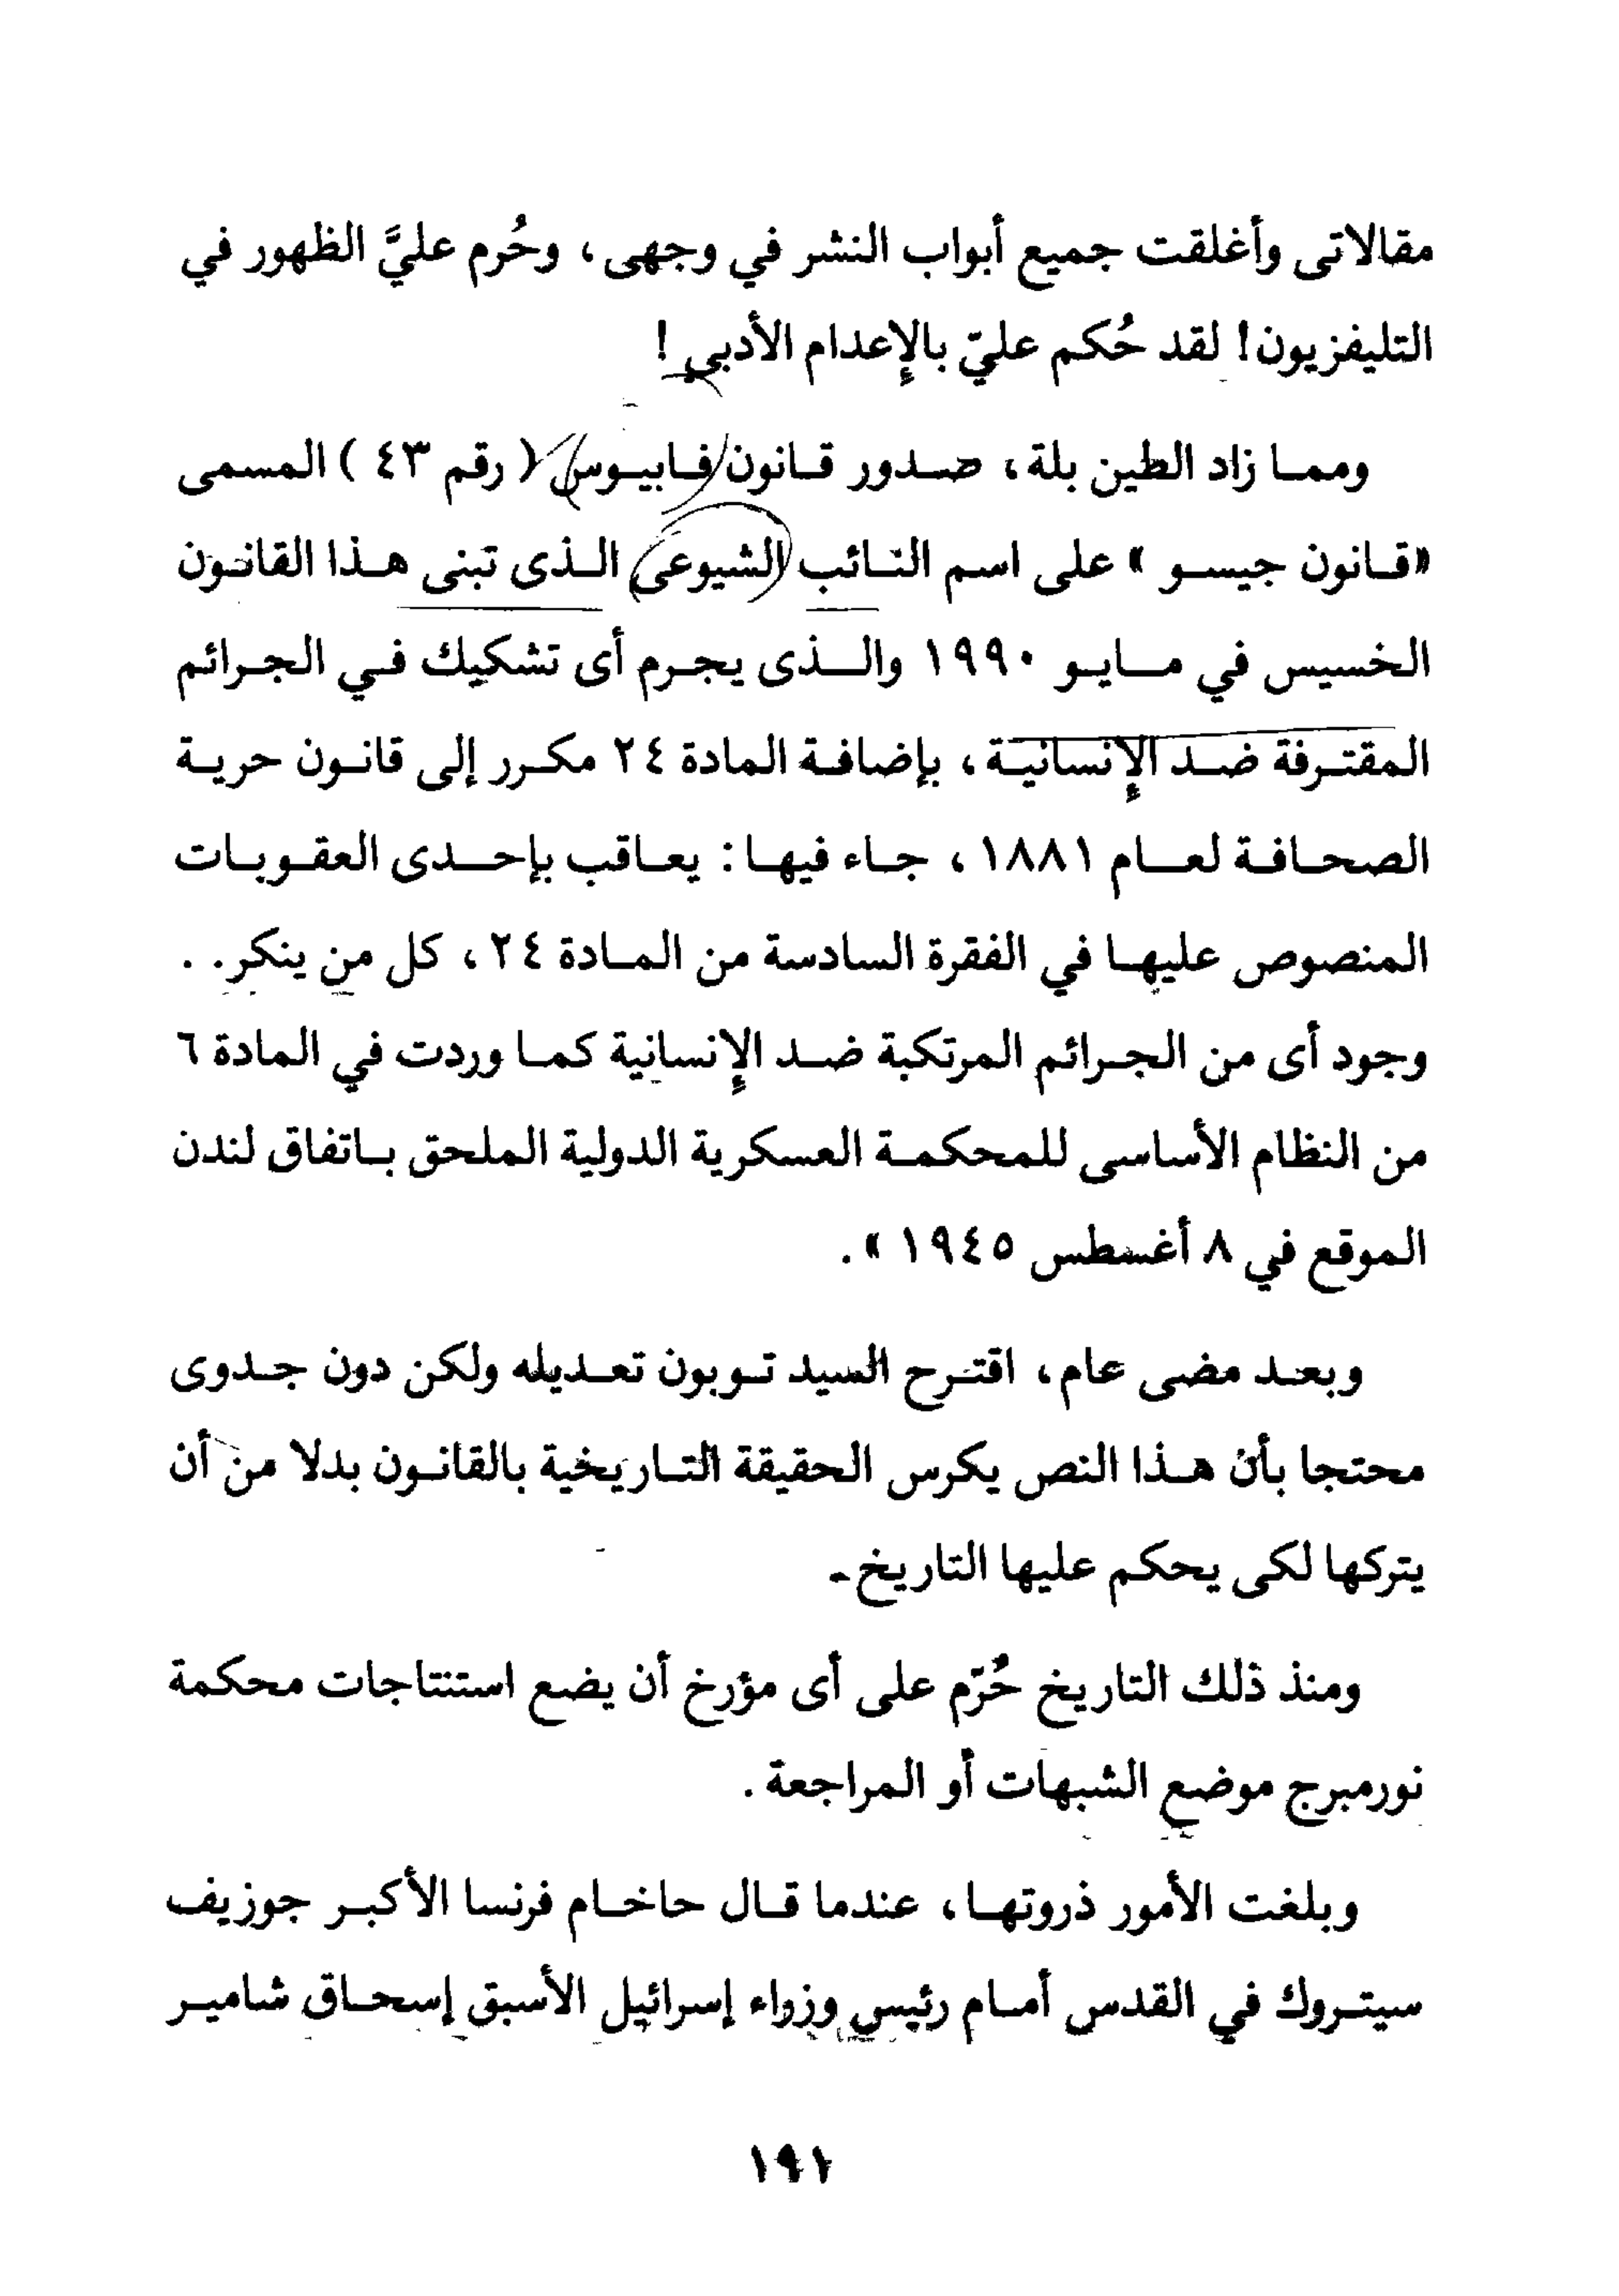 مقالاتى وأغلقت جميع أبواب النشر في وجهى، وحُرم عليَّ الظهور في
التليفزيون! لقد حُكم عليّ بالإعدام الأدبي !
ومما زاد الطين بلة، صدور قانون فابيوس ( رقم ٤٣ ) المسمى
«قانون جيسو » على اسم النائب الشيوعى الذى تبنى هذا القانون
الخسيس في مايو ١٩٩٠ والذى يجرم أى تشكيك في الجرائم
المقترفة ضد الإنسانية، بإضافة المادة ٢٤ مكرر إلى قانون حرية
الصحافة لعام ١٨٨١، جاء فيها: يعاقب بإحدى العقوبات
المنصوص عليها في الفقرة السادسة من المادة ٢٤، كل من ينكر. .
وجود أى من الجرائم المرتكبة ضد الإنسانية كما وردت في المادة ٦
من النظام الأساسى للمحكمة العسكرية الدولية الملحق باتفاق لندن
الموقع في ٨ أغسطس ١٩٤٥ ».
وبعد مضى عام، اقترح السيد توبون تعديله ولكن دون جدوى
محتجا بأن هذا النص يكرس الحقيقة التاريخية بالقانون بدلا من أن
يتركها لكى يحكم عليها التاريخ.
ومنذ ذلك التاريخ حُرّم على أى مؤرخ أن يضع استنتاجات محكمة
نورمبرج موضع الشبهات أو المراجعة.
وبلغت الأمور ذروتها، عندما قال حاخام فرنسا الأكبر جوزيف
سيتروك في القدس أمام رئيس وزراء إسرائيل الأسبق إسحاق شامير
١٩١